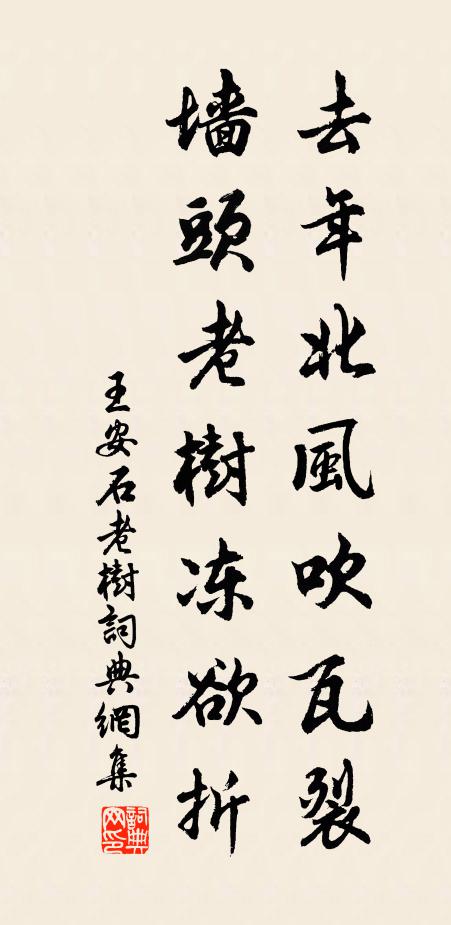 去年北風吹瓦裂
墻頭老樹冻欲折
王安石老樹詞典網集
詞典网印